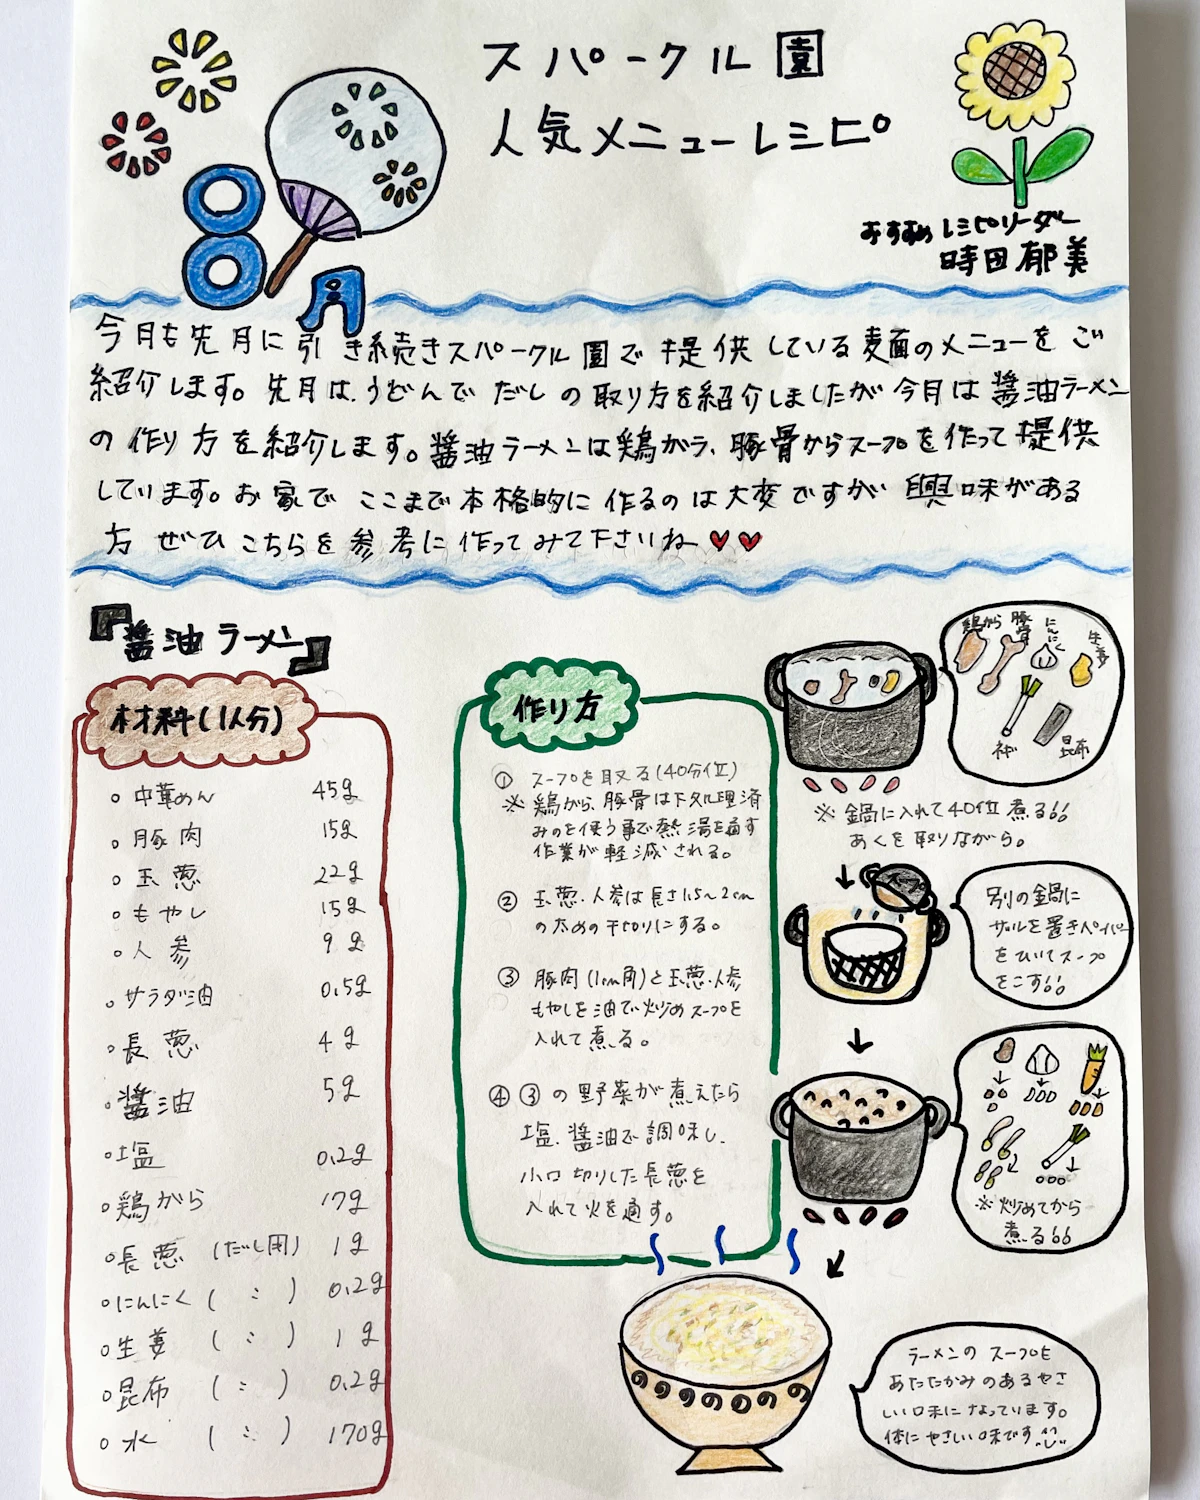 スパークル園
人気メニューレシピ
8月
おすすめレシピリーダー
時田郁美
今月も先月に引き続きスパークル園で提供している麺のメニューをご
紹介します。先月は、うどんでだしの取り方を紹介しましたが今月は醤油ラーメン
の作り方を紹介します。醤油ラーメンは鶏がら、豚骨からスープを作って提供
しています。お家でここまで本格的に作るのは大変ですが興味がある
方ぜひこちらを参考に作ってみて下さいね♥♥
『醤油ラーメン』
材料(1人分)
○中華めん 45g
○豚肉 15g
○玉葱 22g
○もやし 15g
○人参 9g
○サラダ油 0.5g
○長葱 4g
○醤油 5g
○塩 0.2g
○鶏がら 17g
○長葱(だし用) 1g
○にんにく(〃) 0.2g
○生姜(〃) 1g
○昆布(〃) 0.2g
○水(〃) 170g
作り方
① スープを取る(40分位)
※鶏がら、豚骨は下処理済
みのを使う事で熱湯を通す
作業が軽減される。
② 玉葱・人参は長さ1.5~2cm
のための千切りにする。
③ 豚肉(1cm角)と玉葱・人参
もやしを油で炒めスープを
入れて煮る。
④ ③の野菜が煮えたら
塩、醤油で調味し、
小口切りした長葱を
入れて火を通す。
鶏がら 豚骨 にんにく 生姜
ネギ 昆布
※鍋に入れて40位煮る!!
あくを取りながら。
スープ
別の鍋に
ザルを置きペーパー
をひいてスープ
をこす!!
※炒めてから
煮る!!
ラーメンのスープも
あたたかみのあるやさ
しい味になっています。
体にやさしい味です